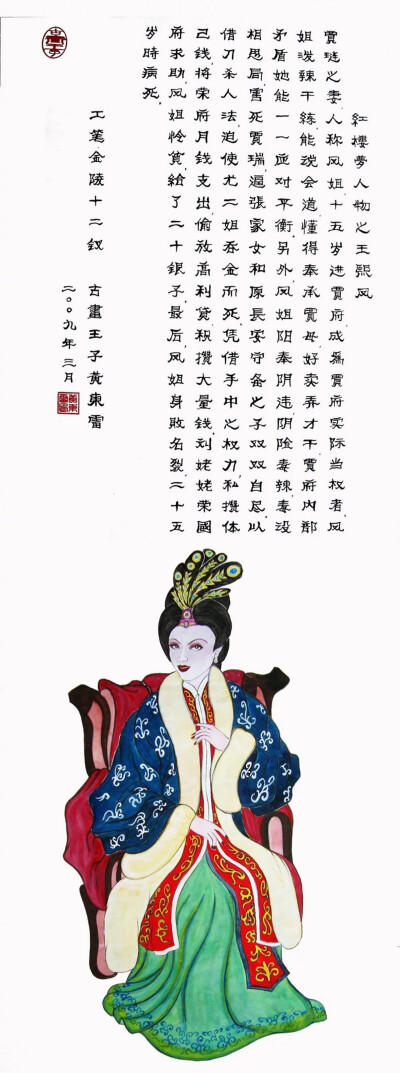 紅樓夢人物之王熙凤
賈琏之妻,人称凤姐,十五岁进賈府成爲賈府实际当权者,凤
姐泼辣干練,能説会道,懂得奉承賈母,好卖弄才干,賈府内部
矛盾她能一一应对平衡,另外,凤姐阳奉阴违,阴险毒辣,毒设
相思局,害死賈瑞,逼張家女和原長安守备之子双双自尽,以
借刀杀人法迫使尤二姐吞金而死,凭借手中之权力,私攒体
己錢,将荣府月錢支出偷放高利貸,积攒大量錢,刘姥姥荣國
府求助,凤姐怜贫给了二十银子,最后,凤姐身敗名裂,二十五
岁時病死.
工笔金陵十二钗
古畫王子黄東雷
二00九年三月